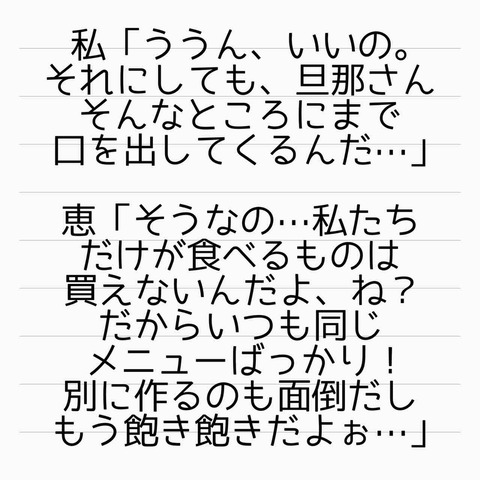 私「ううん、いいの。
それにしても、旦那さん
そんなところにまで
口を出してくるんだ…」
恵「そうなの…私たち
だけが食べるものは
買えないんだよ、ね？
だからいつも同じ
メニューばっかり！
別に作るのも面倒だし
もう飽き飽きだよぉ…」